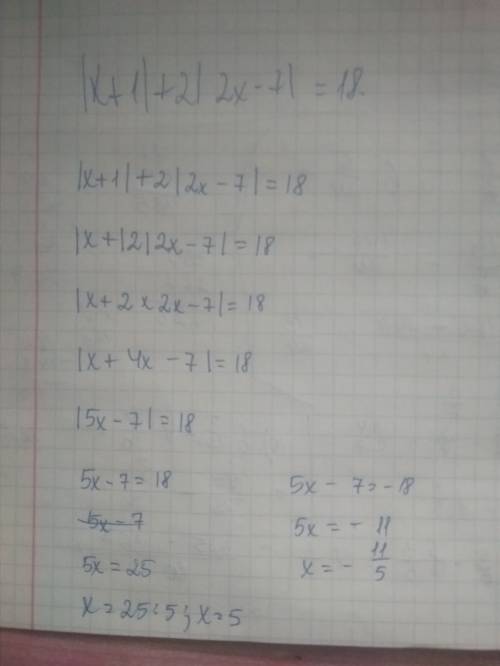 |x+1|+2|2x-7| = 18.
|x+1|+2|2x-7|=18
|x+|2|2x-7|=18
|x+2×2x-7|=18
|x+4x-7|=18
|5x-7|=18
5x-7=18 5x-7=-18
5x-7 5x=-11
5x=25 x=-11/5
x=25:5; x=5